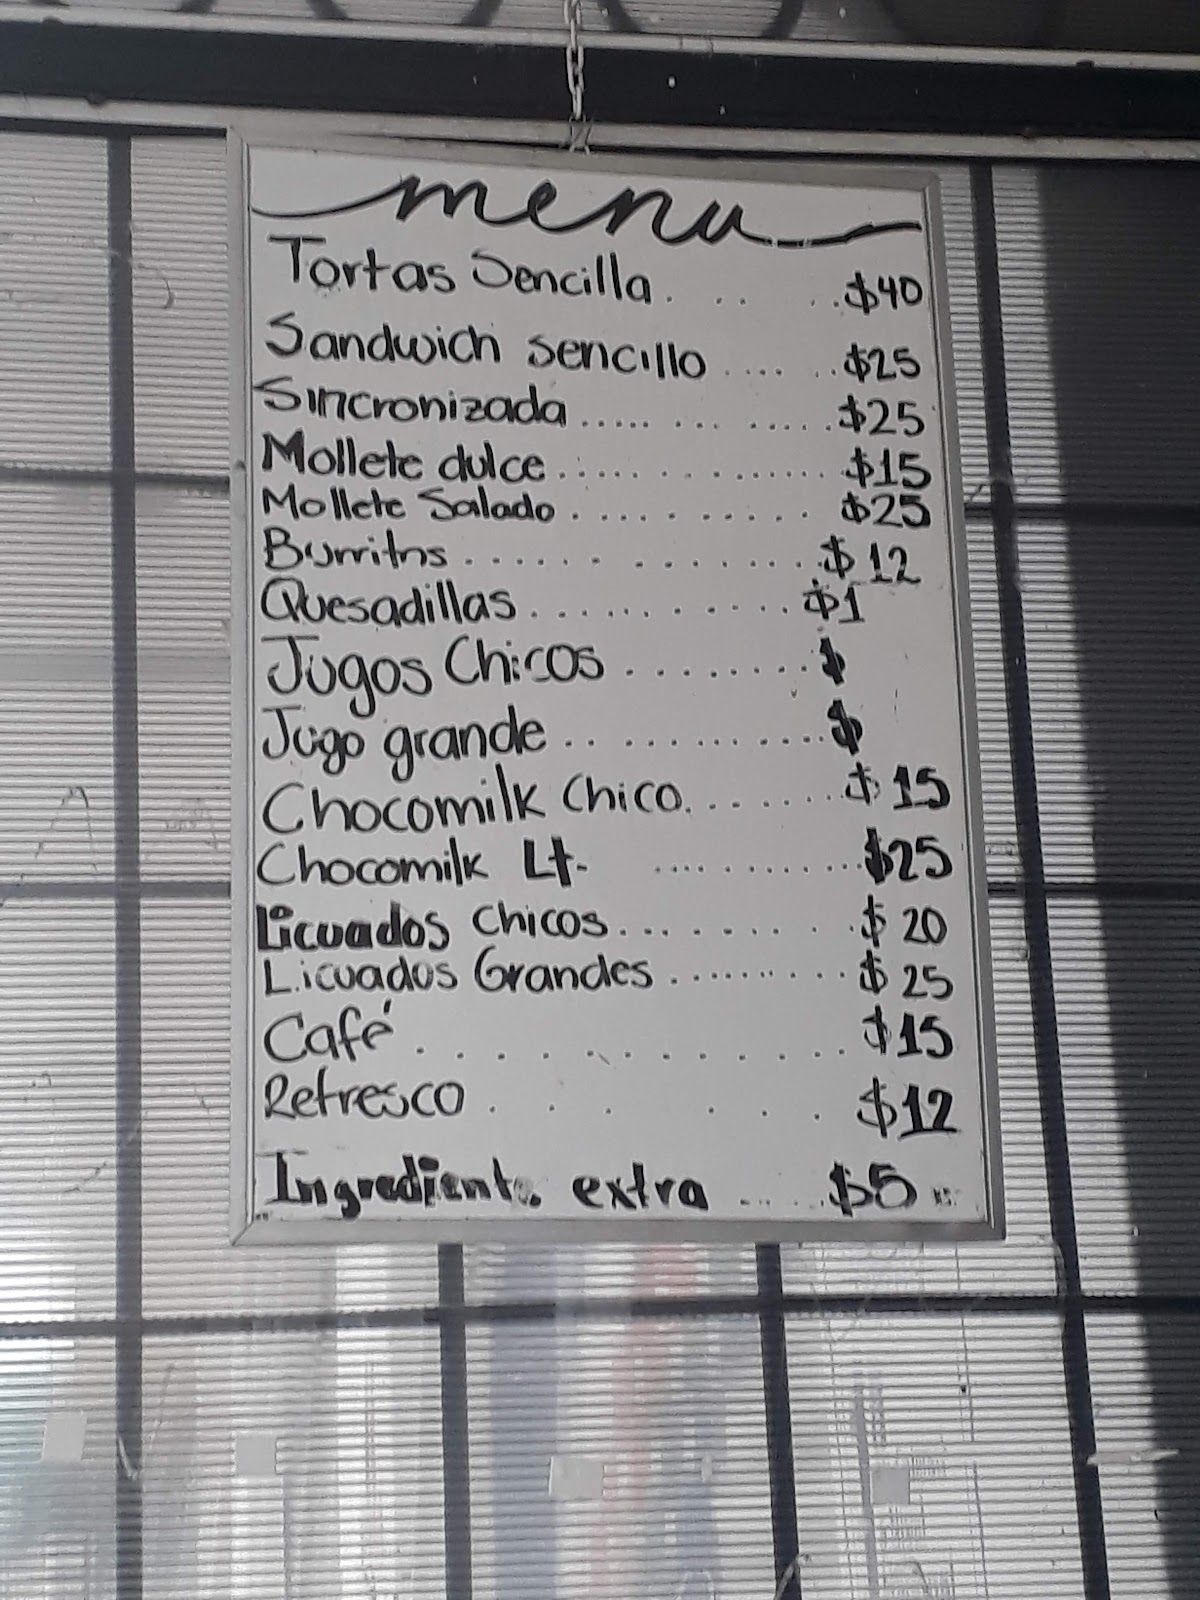 menu
Tortas Sencilla. .. ..$40
Sandwich sencillo .... ..$25
Sincronizada ..... ... .....$25
Mollete dulce ..............$15
Mollete Salado ..........$25
Burritos ...... ........$12
Quesadillas ...........$1
Jugos Chicos ........$
Jugo grande .. ..........$
Chocomilk Chico. .......$15
Chocomilk Lt- ............$25
Licuados Chicos.........$20
Licuados Grandes ...........$25
Café .............$15
Refresco . . . . . .$12
Ingrediente extra ... ..$5